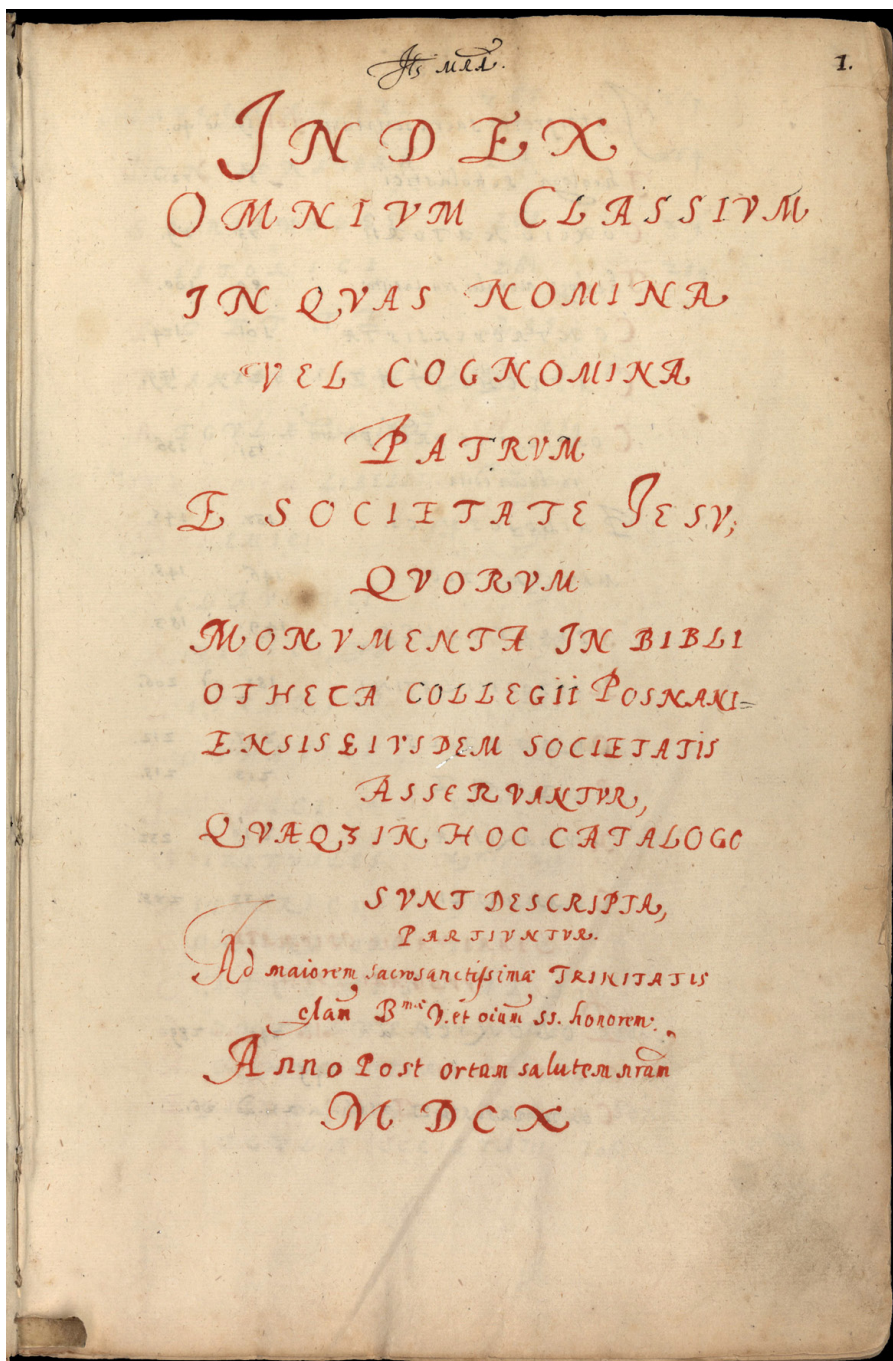 Jħs MRA.
1.
INDEX
OMNIVM CLASSIVM
IN QVAS NOMINA
VEL COGNOMINA
PATRVM
E SOCIETATE JESV,
QVORVM
MONVMENTA IN BIBLI
OTHECA COLLEGII POSNANI=
ENSIS EIVSDEM SOCIETATIS
ASSERVANTVR,
QVÆQꝫ IN HOC CATALOGO
SVNT DESCRIPTA,
PARTIVNTVR.
Ad maiorem sacrosanctissimæ TRINITATIS
glam̃ B^mæ V. et oium̃ ss. honorem.
Anno Post ortam salutem nram̃
MDCX